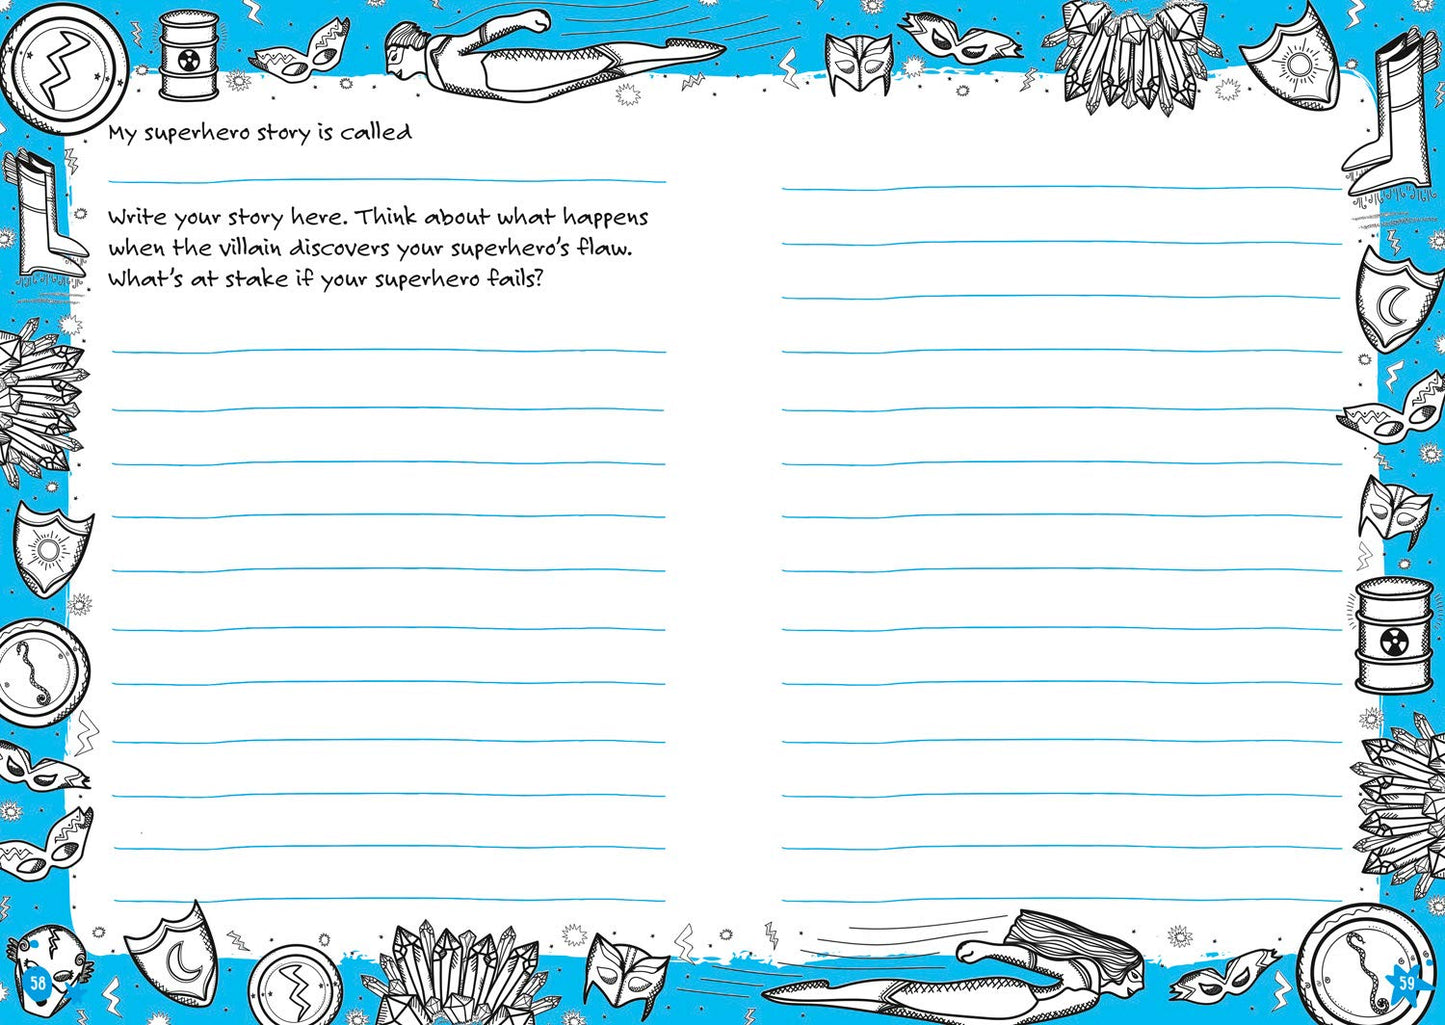 My superhero story is called
Write your story here. Think about what happens
when the villain discovers your superhero's flaw.
What's at stake if your superhero fails?
58
59